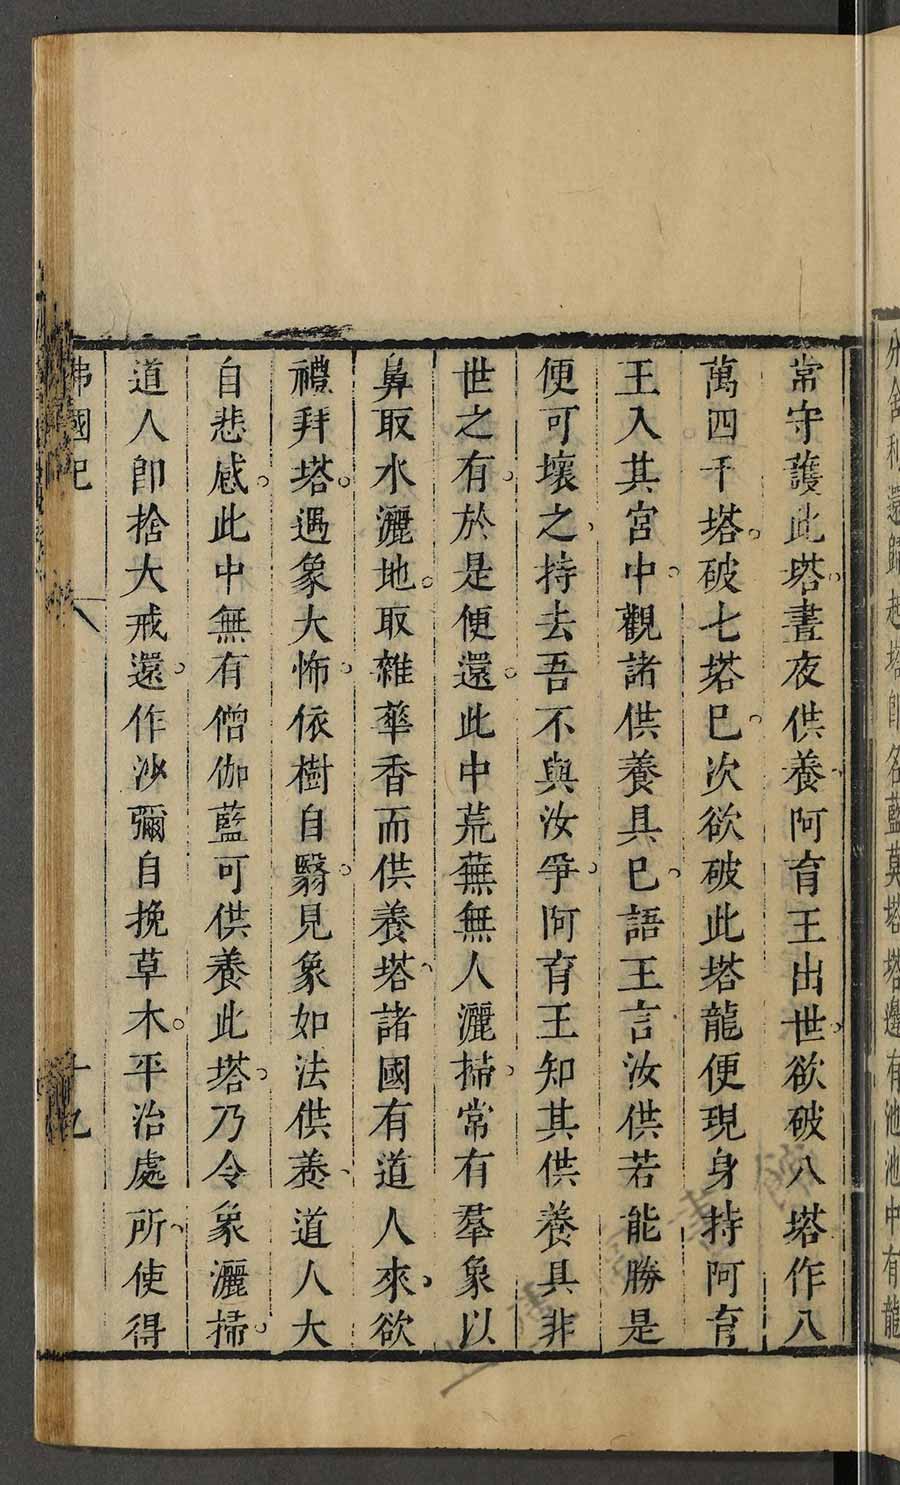 分舍利還歸起塔即名藍莫塔塔邊有池池中有龍
常守護此塔晝夜供養阿育王出世欲破八塔作八
萬四千塔破七塔已次欲破此塔龍便現身持阿育
王入其宮中觀諸供養具已語王言汝供若能勝是
便可壞之持去吾不與汝爭阿育王知其供養具非
世之有於是便還此中荒蕪無人灑掃常有羣象以
鼻取水灑地取雜華香而供養塔諸國有道人來欲
禮拜塔遇象大怖依樹自翳見象如法供養道人大
自悲感此中無有僧伽藍可供養此塔乃令象灑掃
道人即捨大戒還作沙彌自挽草木平治處所使得
佛國記
十九